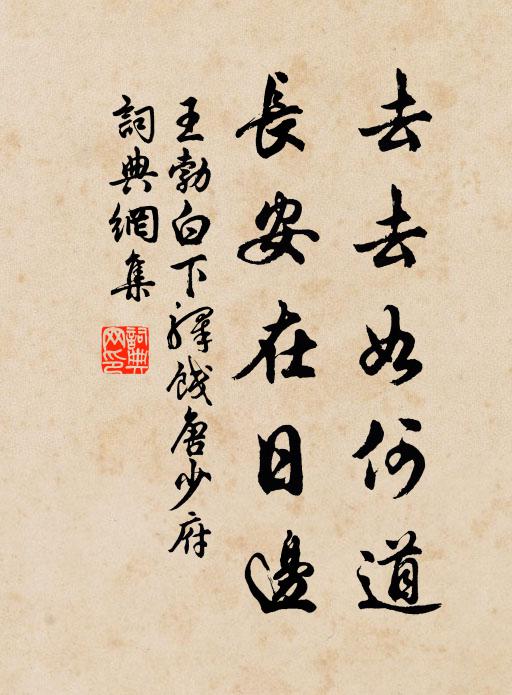 去去如何道
長安在日邊
王勃白下驛餞唐少府
詞典網集
詞典網印